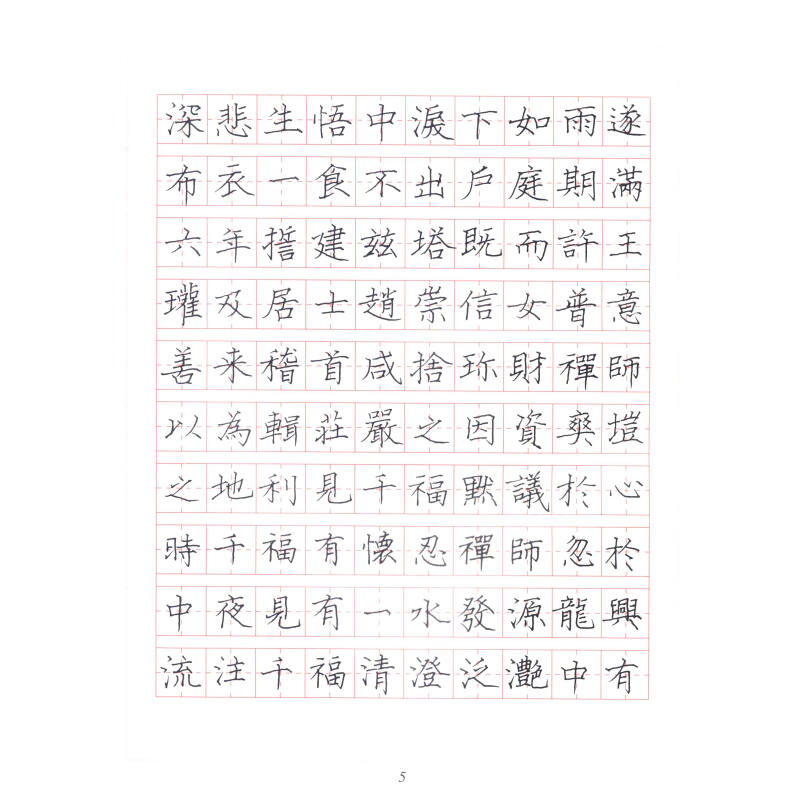 深悲生悟中淚下如雨遂
布衣一食不出戶庭期滿
六年誓建茲塔既而許王
瓘及居士趙崇信女普意
善来稽首咸捨珎財禪師
以為輯莊嚴之因資爽塏
之地利見千福默議於心
時千福有懷忍禪師忽於
中夜見有一水發源龍興
流注千福清澄泛灔中有
5